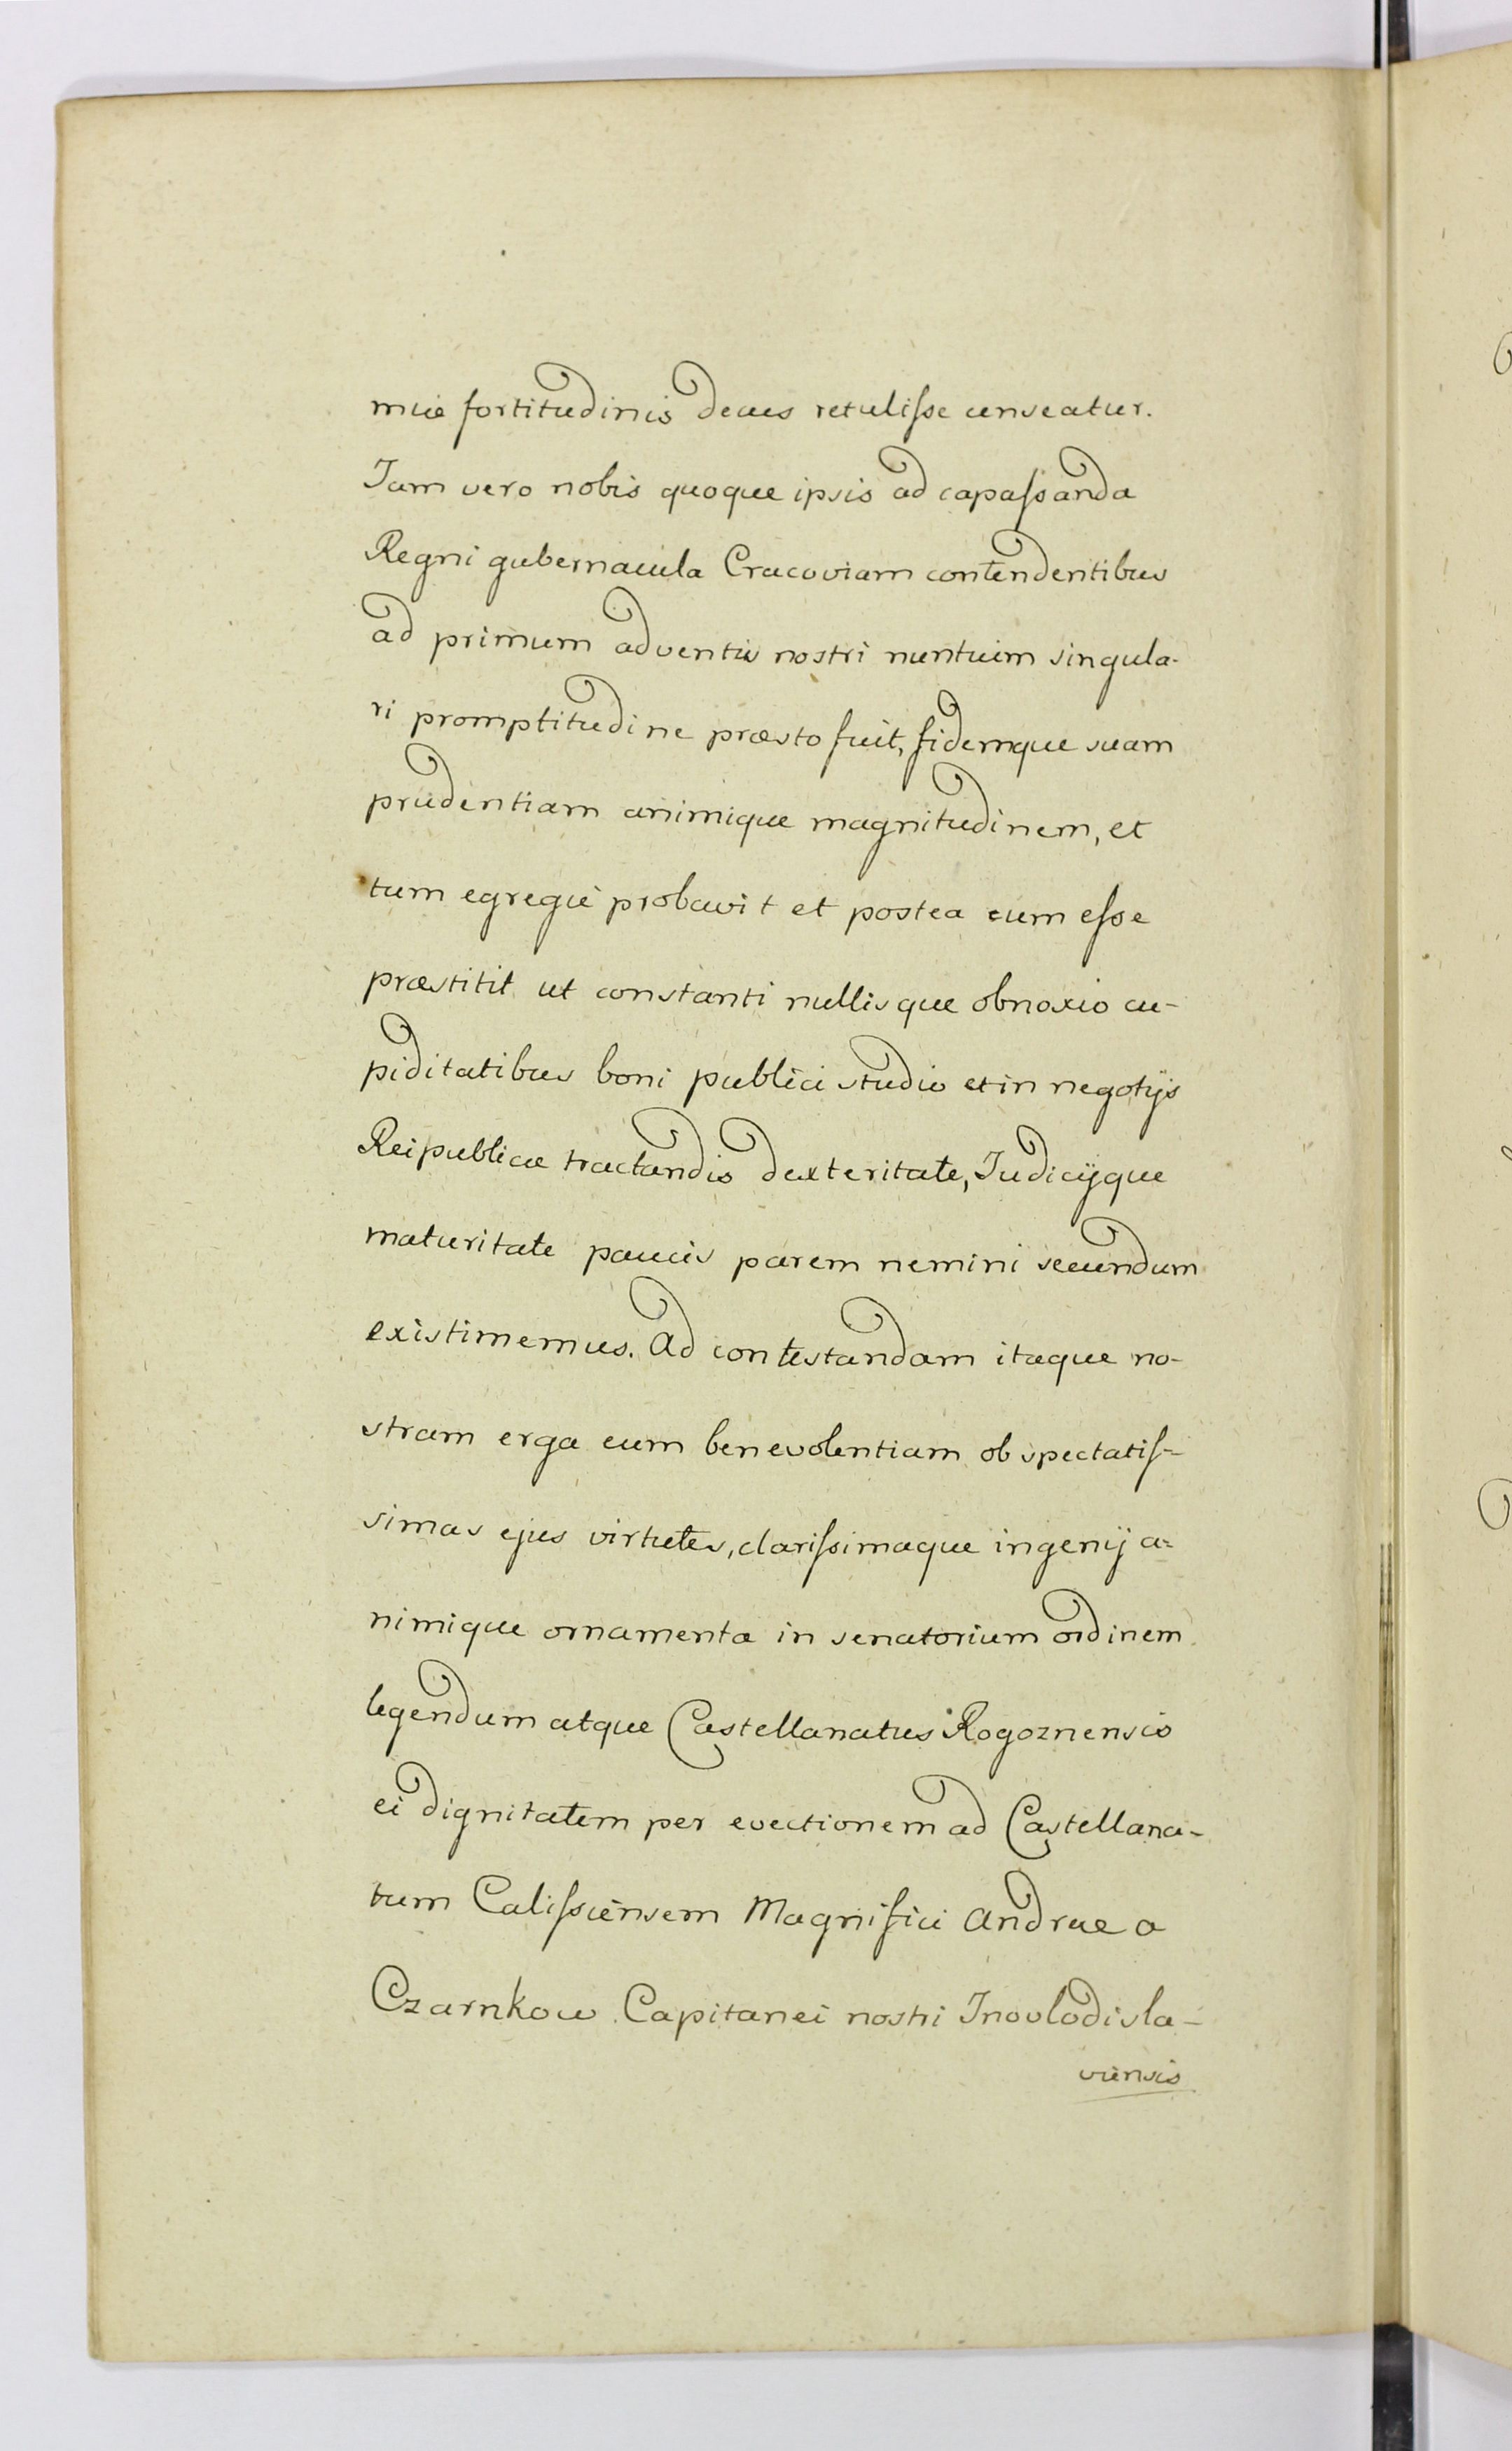 miæ fortitudinis decus retulisse censeatur.
Iam vero nobis quoque ipsis ad capassanda
Regni gubernacula Cracoviam contendentibus
ad primum adventus nostri nuntium singula-
ri promptitudine præsto fuit, fidemque suam
prudentiam animique magnitudinem, et
tum egregie probavit et postea eum esse
præstitit ut constanti nullisque obnoxio cu-
piditatibus boni publici studio et in negotijs
Reipublicæ tractandis dexteritate, Iudicijque
maturitate paucis parem nemini secundum
existimemus. Ad contestandam itaque no-
stram erga eum benevolentiam ob spectatis-
simas ejus virtutes, clarissimaque ingenij a-
nimique ornamenta in senatorium ordinem
legendum atque Castellanatus Rogoznensis
ei dignitatem per evectionem ad Castellana-
tum Calissiensem Magnifici Andreæ a
Czarnkow Capitanei nostri Inovlodisla-
viensis